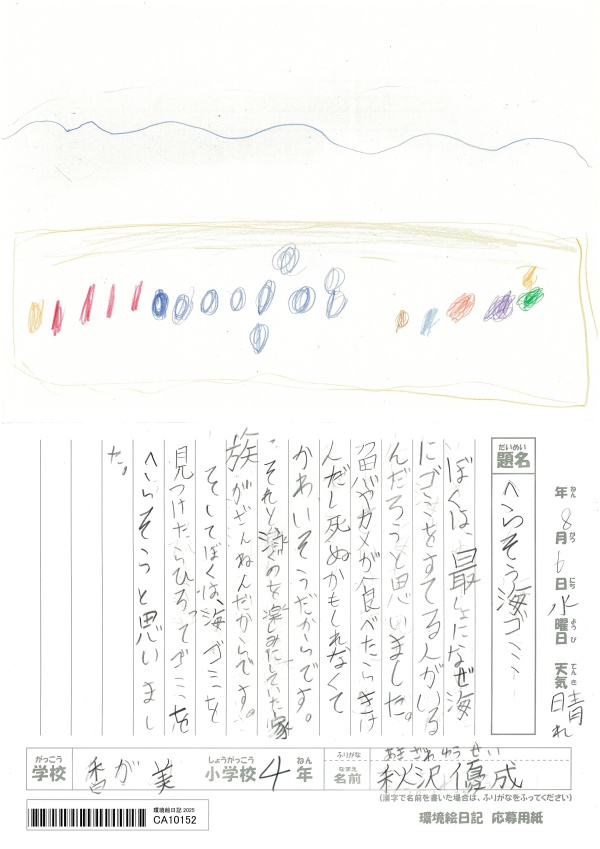 年 8月 6日 水曜日 天気 晴れ
ねん がつ にち ようび てんき
だいめい
題名
へらそう海ゴミ
ぼくは、最しょになぜ海
にゴミをすてる人がいる
んだろうと思いました。
魚やカメが食べたらきけ
んだし死ぬかもしれなくて
かわいそうだからです。
それと泳ぐのを楽しみにしていた家
族がざんねんだからです。
そしてぼくは、海ゴミを
見つけたらひろってゴミを
へらそうと思いまし
た。
がっこう
学校
香が美
しょうがっこう
小学校
4
ねん
年
ふりがな
あきざわゆうせい
なまえ
名前
秋沢優成
(漢字で名前を書いた場合は、ふりがなをふってください)
環境絵日記 2025
CA10152
環境絵日記 応募用紙